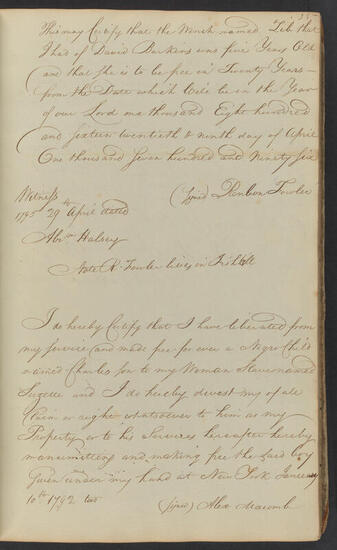 This may Certify that the Wench named Zib that
I had of David Barkins was five Years Old
and that she is to be free in Twenty Years—
from the Date which will be in the Year
of our Lord one thousand Eight hundred
and sixteen twentieth & ninth day of April
One thousand Seven hundred and Ninety Six
(signed) Reuben Fowler
Witness
1795 29th April dated
Abrm Halsey
Note R. Fowler lives in
I do hereby Certify that I have liberated from
my service and made free for ever a Negro Child
named Charles son to my Woman Slave named
Susette and I do hereby divest my of all
Claim or right whatsoever to him as my
Property or to his Services hereafter hereby
manumitting and making free the said boy
Given under my hand at New York January
10th 1792 two
(signed) Alex Macomb